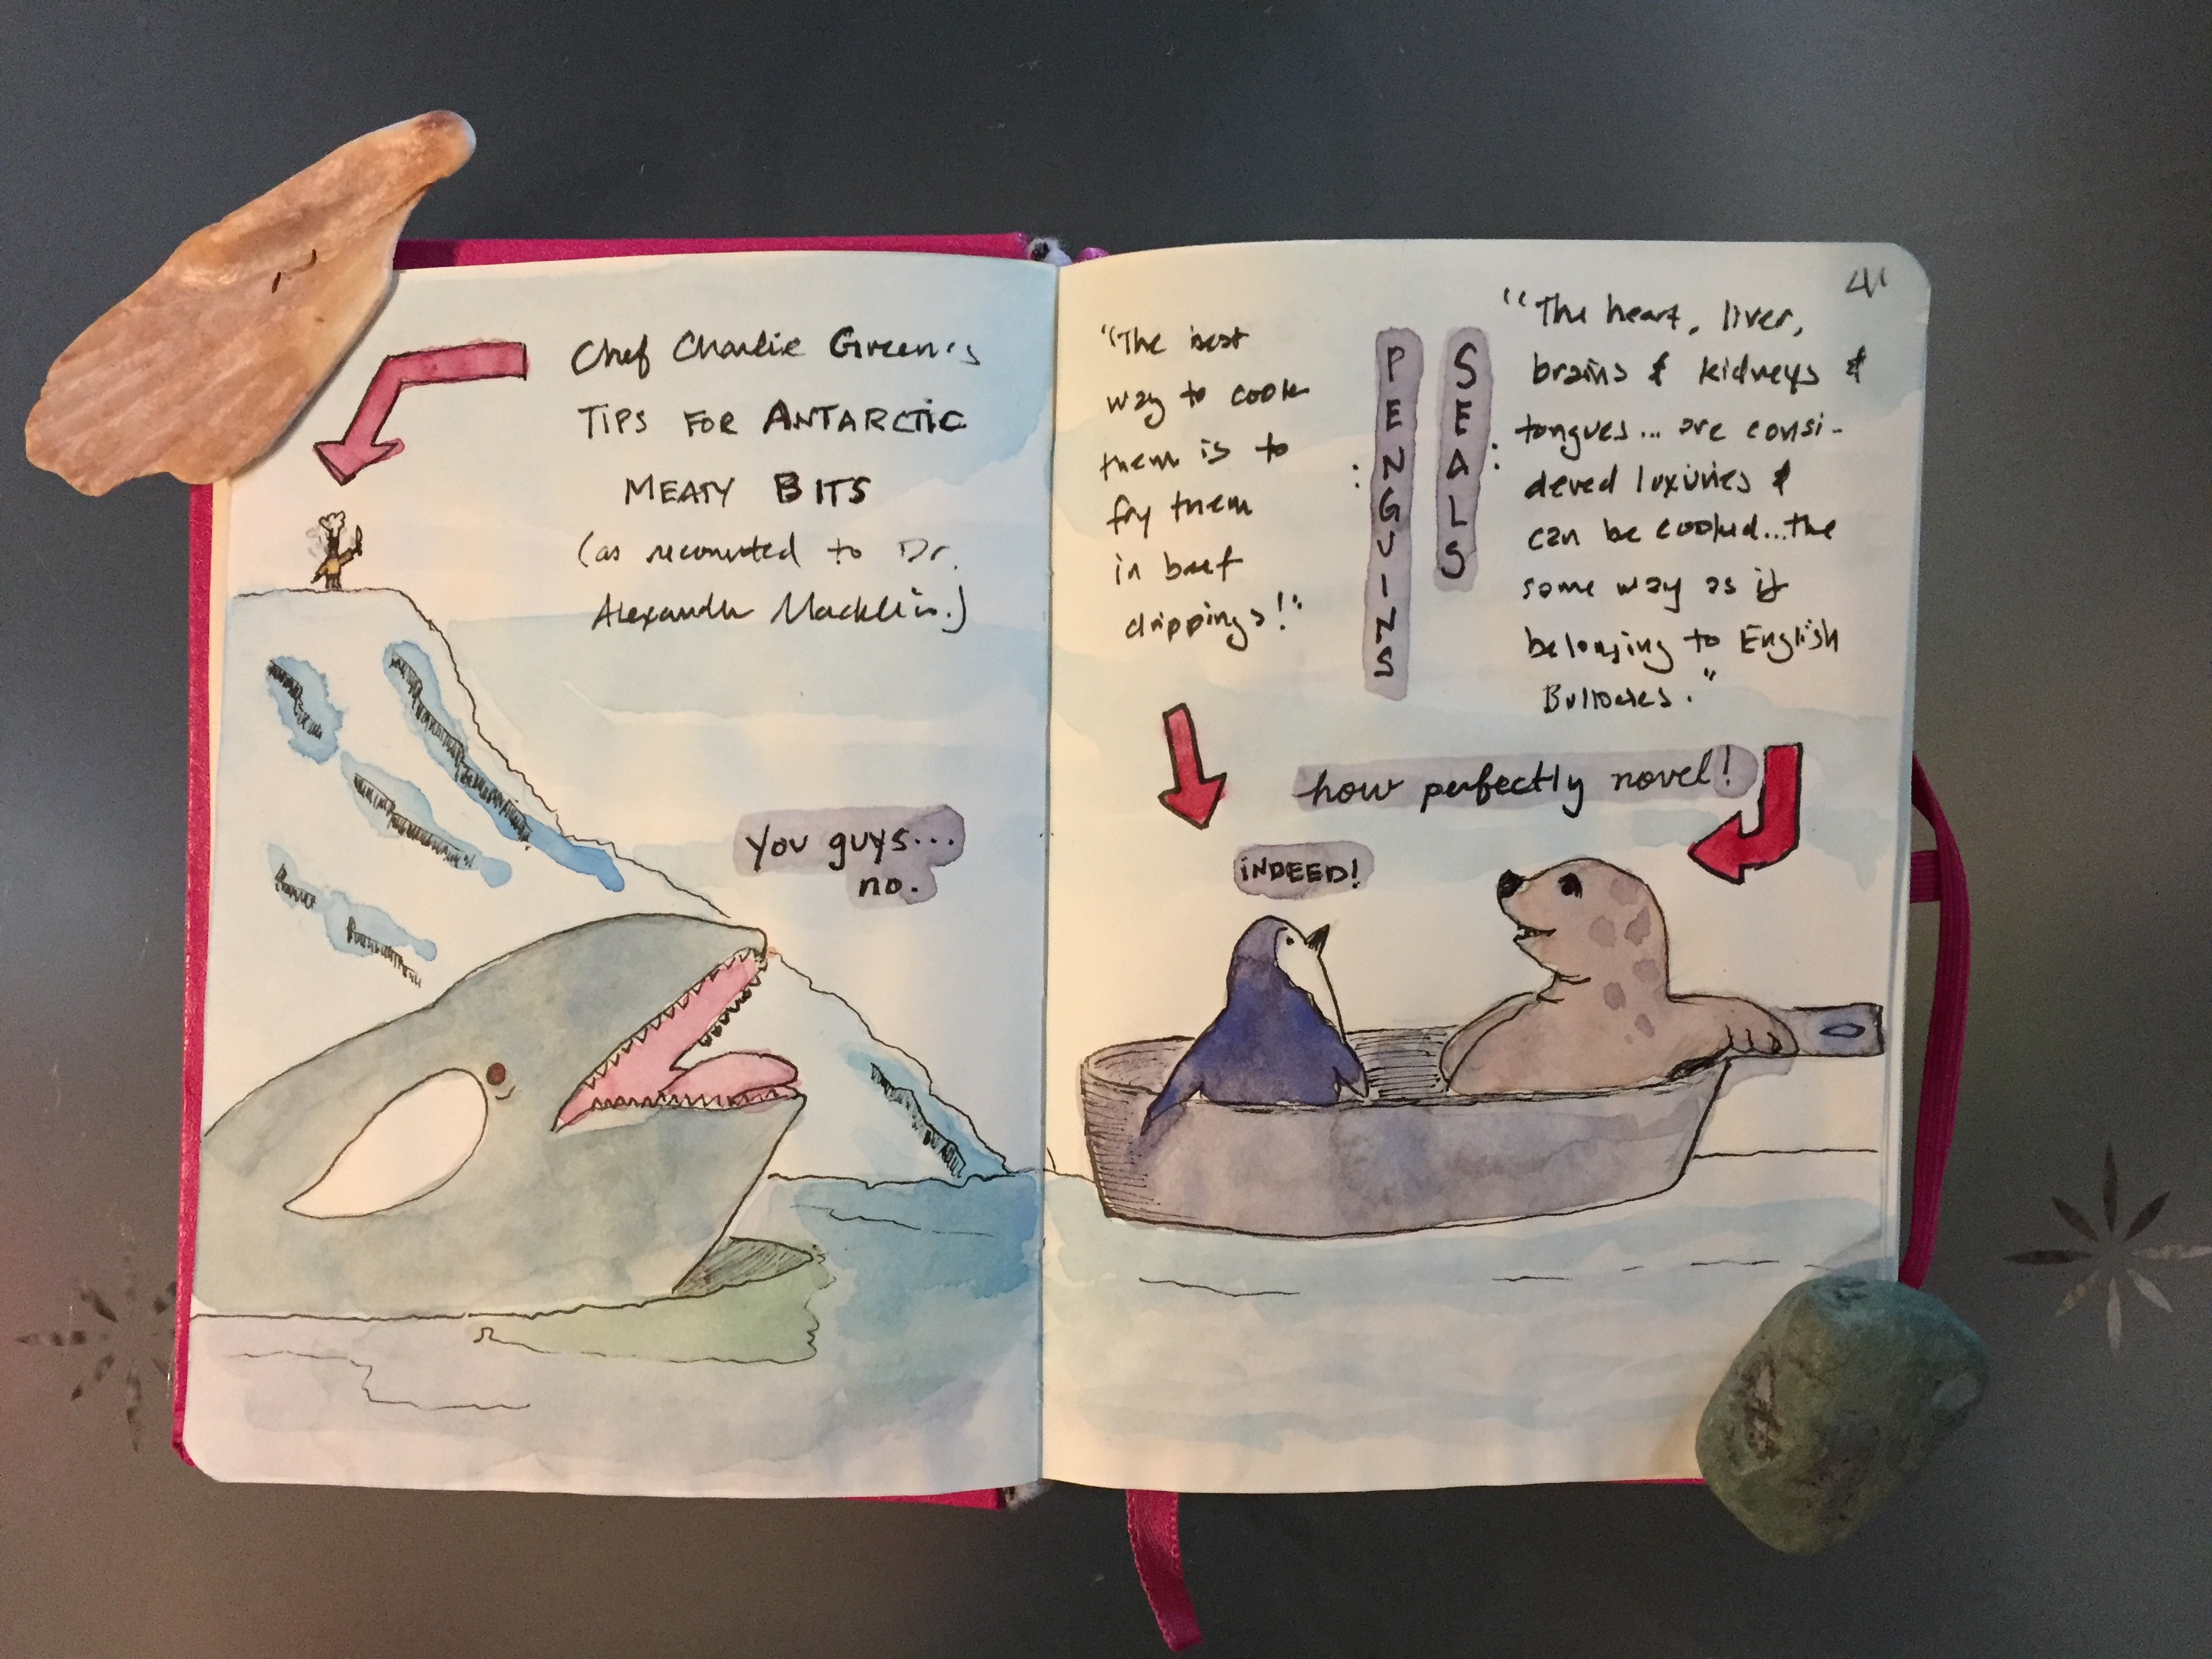 Chef Charlie Green's
TIPS FOR ANTARCTIC
MEATY BITS
(as recounted to Dr.
Alexander Macklin.)
You guys...
no.
41
"The best
way to cook
them is to
fry them
in beef
drippings!"
PENGUINS:
SEALS:
"The heart, liver,
brains & kidneys &
tongues... are consi-
dered luxuries &
can be cooked... the
same way as if
belonging to English
Bullocks."
how perfectly novel!
INDEED!